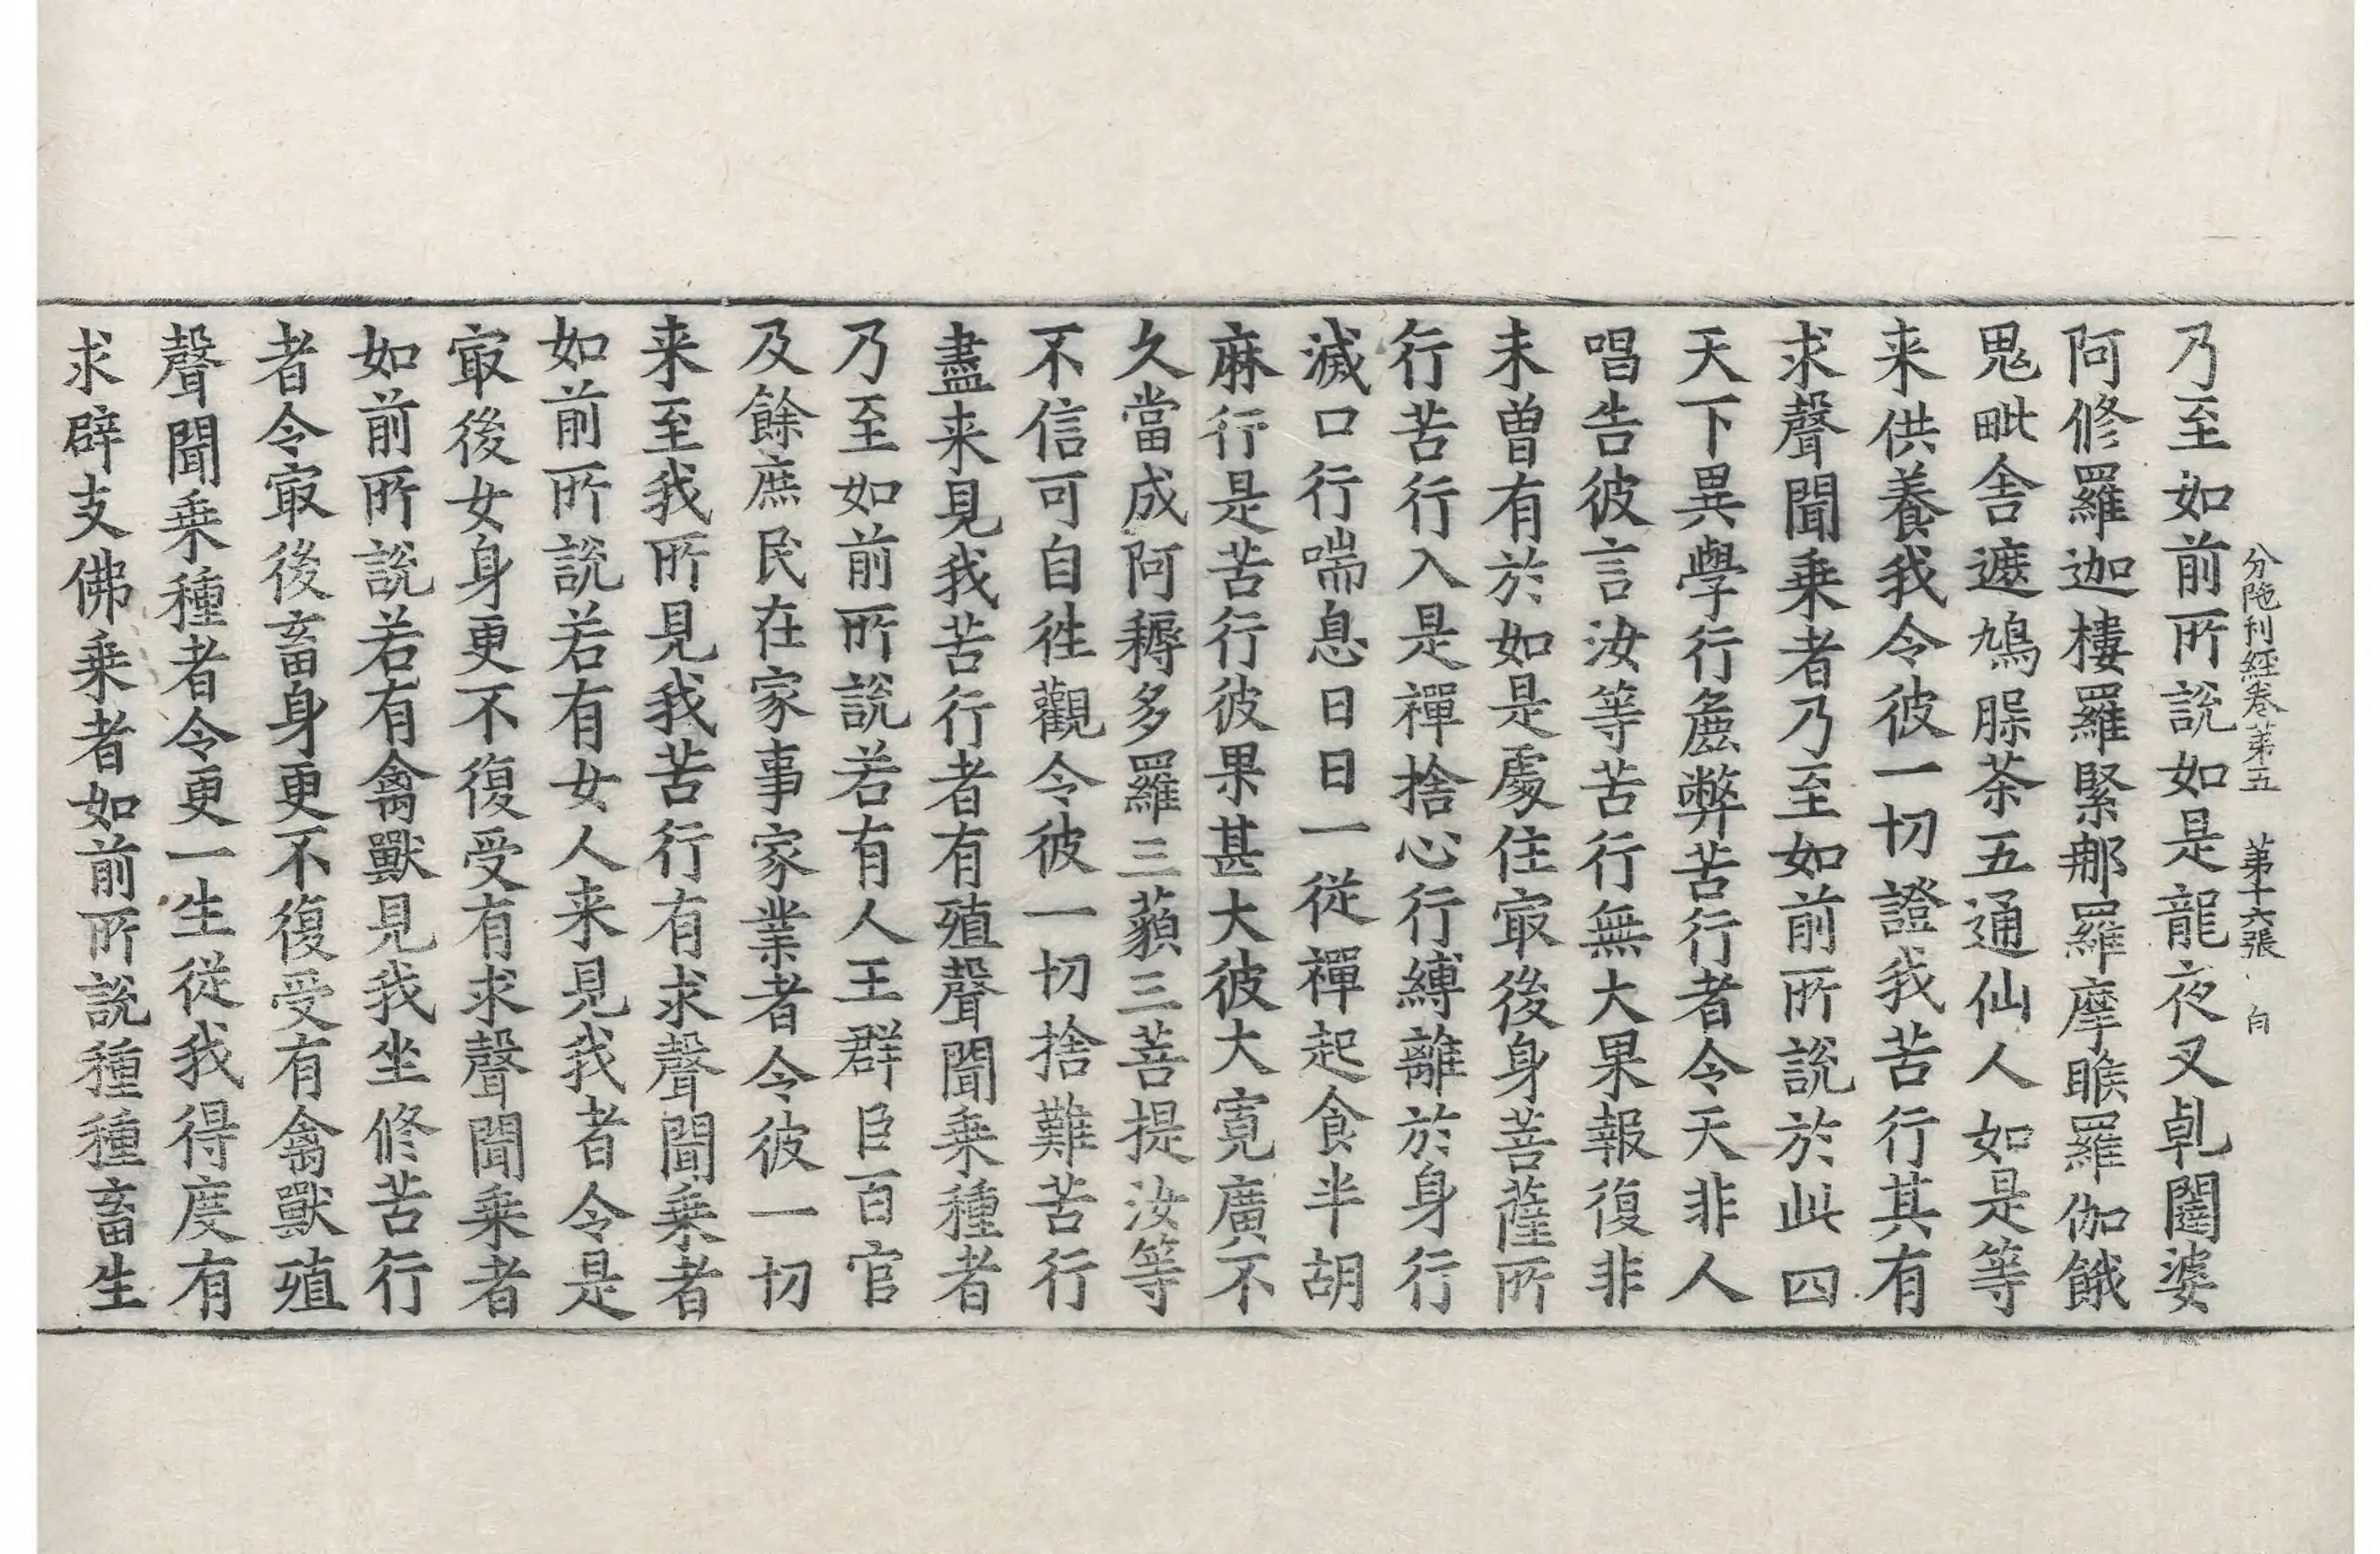 分陁利經卷第五　第十六張　向
乃至如前所說如是龍夜叉乹闥婆
阿修羅迦樓羅緊那羅摩睺羅伽餓
鬼毗舍遮鳩腺荼五通仙人如是等
来供養我令彼一切證我苦行其有
求聲聞乗者乃至如前所說於此四
天下異學行麁弊苦行者令天非人
唱告彼言汝等苦行無大果報復非
未曽有於如是處住㝡後身菩薩所
行苦行入是禪捨心行縛離於身行
滅口行喘息日日一從禪起食半胡
麻行是苦行彼果甚大彼大寬廣不
久當成阿耨多羅三藐三菩提汝等
不信可自徃觀令彼一切捨難苦行
盡来見我苦行者有殖聲聞乗種者
乃至如前所說若有人王群臣百官
及餘庶民在家事家業者令彼一切
来至我所見我苦行有求聲聞乗者
如前所說若有女人来見我者令是
㝡後女身更不復受有求聲聞乗者
如前所說若有禽獸見我坐修苦行
者令㝡後畜身更不復受有禽獸殖
聲聞乗種者令更一生從我得度有
求辟支佛乗者如前所說種種畜生